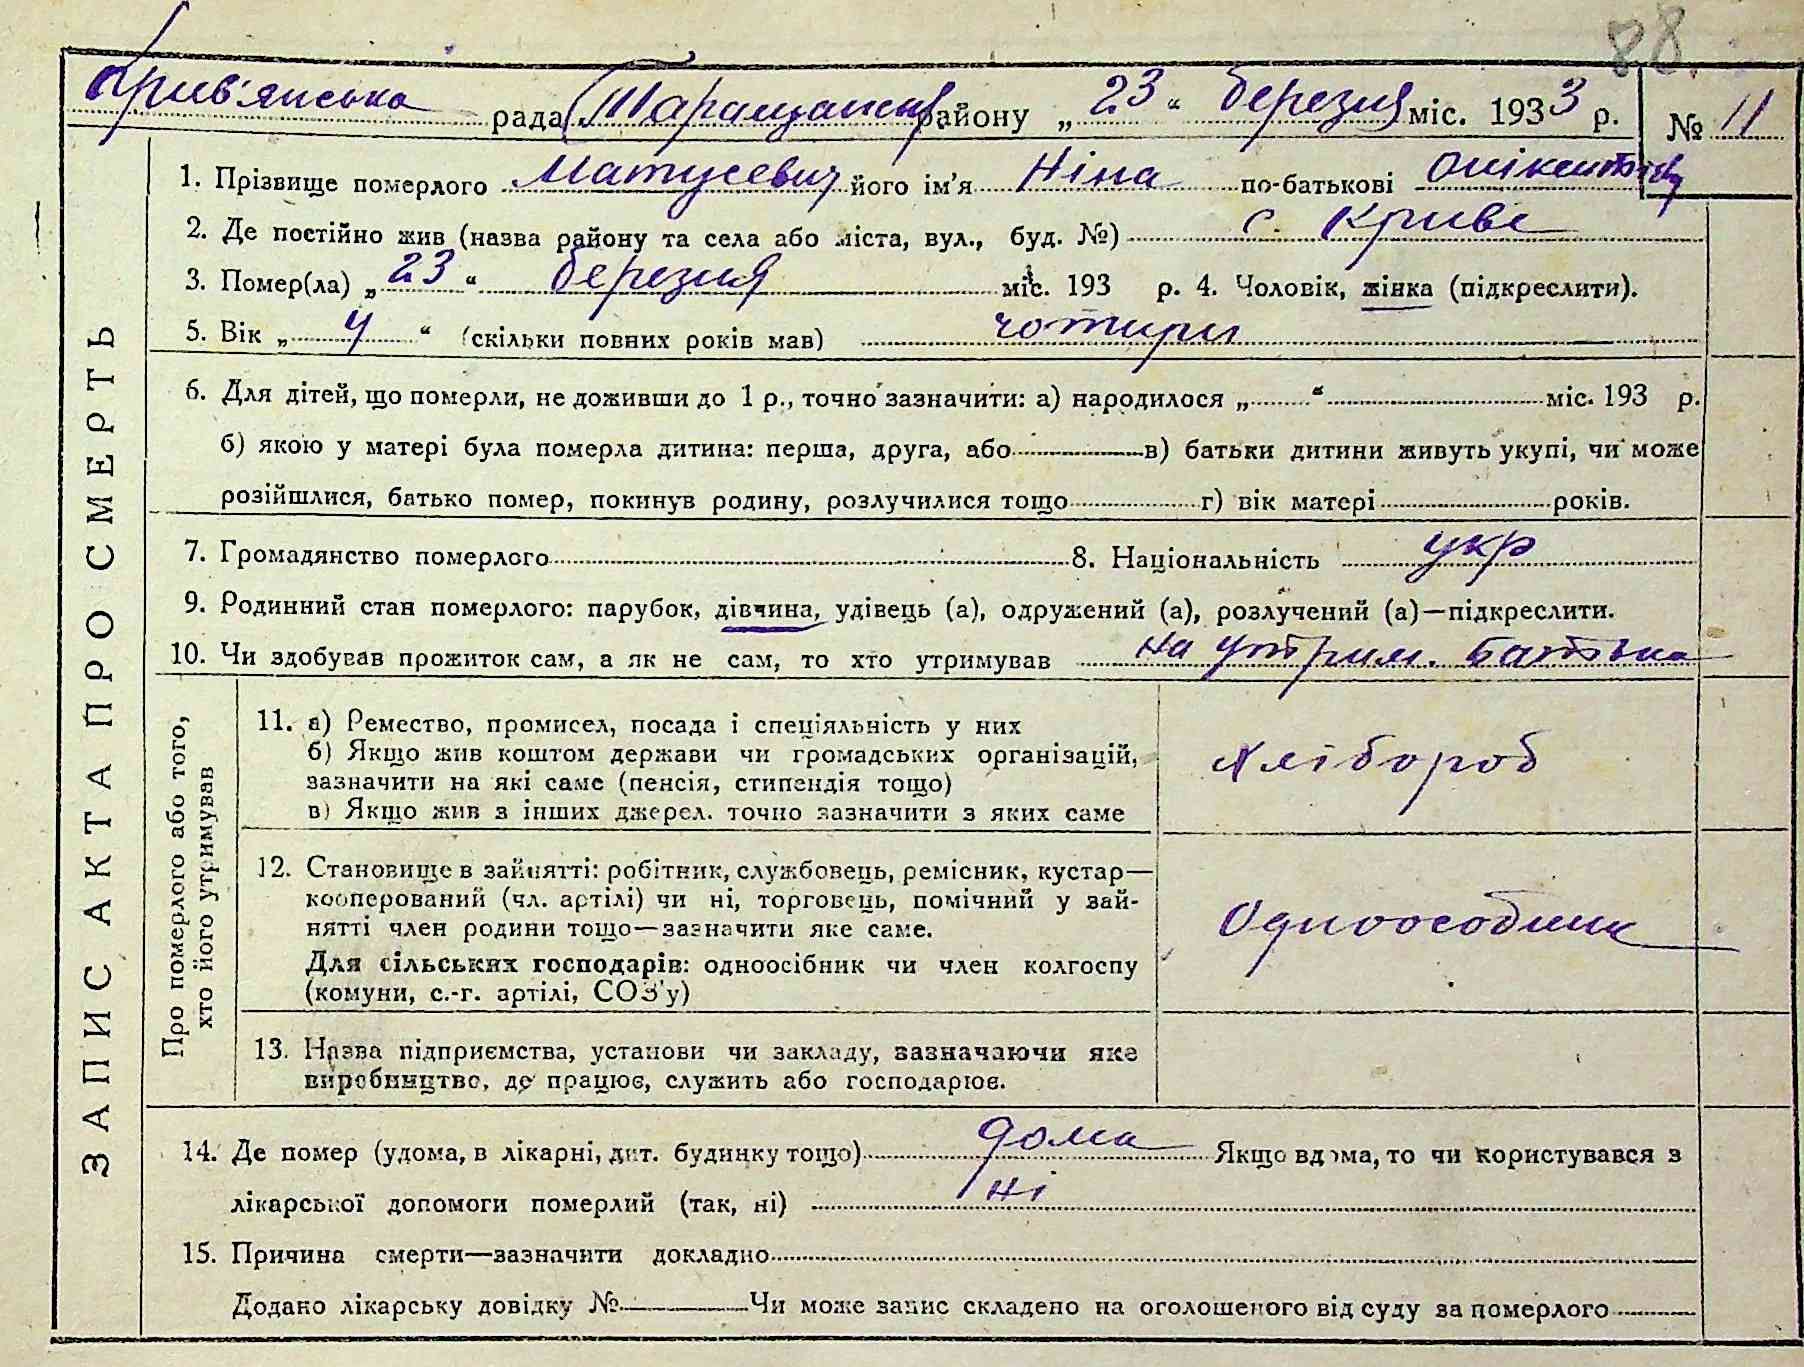 88
Крив'янська рада Таращанськ району „ 23 “ березня міс. 1933 р. № 11
1. Прізвище померлого Матусевич його ім'я Ніна по-батькові
2. Де постійно жив (назва району та села або міста, вул., буд. №) с. Криве
3. Помер(ла) „ 23 “ березня міс. 193 р. 4. Чоловік, жінка (підкреслити).
5. Вік „ 4 “ (скільки повних років мав) чотири
6. Для дітей, що померли, не доживши до 1 р., точно зазначити: а) народилося „ “ міс. 193 р.
б) якою у матері була померла дитина: перша, друга, або в) батьки дитини живуть укупі, чи може
розійшлися, батько помер, покинув родину, розлучилися тощо г) вік матері років.
7. Громадянство померлого 8. Національність укр
9. Родинний стан померлого: парубок, дівчина, удівець (а), одружений (а), розлучений (а)—підкреслити.
10. Чи здобував прожиток сам, а як не сам, то хто утримував на утрим. батька
11. а) Ремество, промисел, посада і спеціяльність у них
б) Якщо жив коштом держави чи громадських організацій,
зазначити на які саме (пенсія, стипендія тощо)
в) Якщо жив з інших джерел. точно зазначити з яких саме
Хлібороб
12. Становище в зайнятті: робітник, службовець, ремісник, кустар—
кооперований (чл. артілі) чи ні, торговець, помічний у зай-
нятті член родини тощо—зазначити яке саме.
Для сільських господарів: одноосібник чи член колгоспу
(комуни, с.-г. артілі, СОЗ'у)
Одноособник
13. Назва підприємства, установи чи закладу, зазначаючи яке
виробництво, де працює, служить або господарює.
14. Де помер (удома, в лікарні, дит. будинку тощо) дома Якщо вдома, то чи користувався з
лікарської допомоги померлий (так, ні) ні
15. Причина смерти—зазначити докладно
Додано лікарську довідку № Чи може запис складено на оголошеного від суду за померлого
ЗАПИС АКТА ПРО СМЕРТЬ
Про померлого або того,
хто його утримував